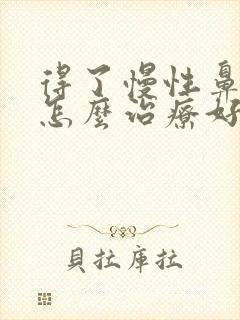 得了慢性鼻
怎麼治療好
貝拉庫拉